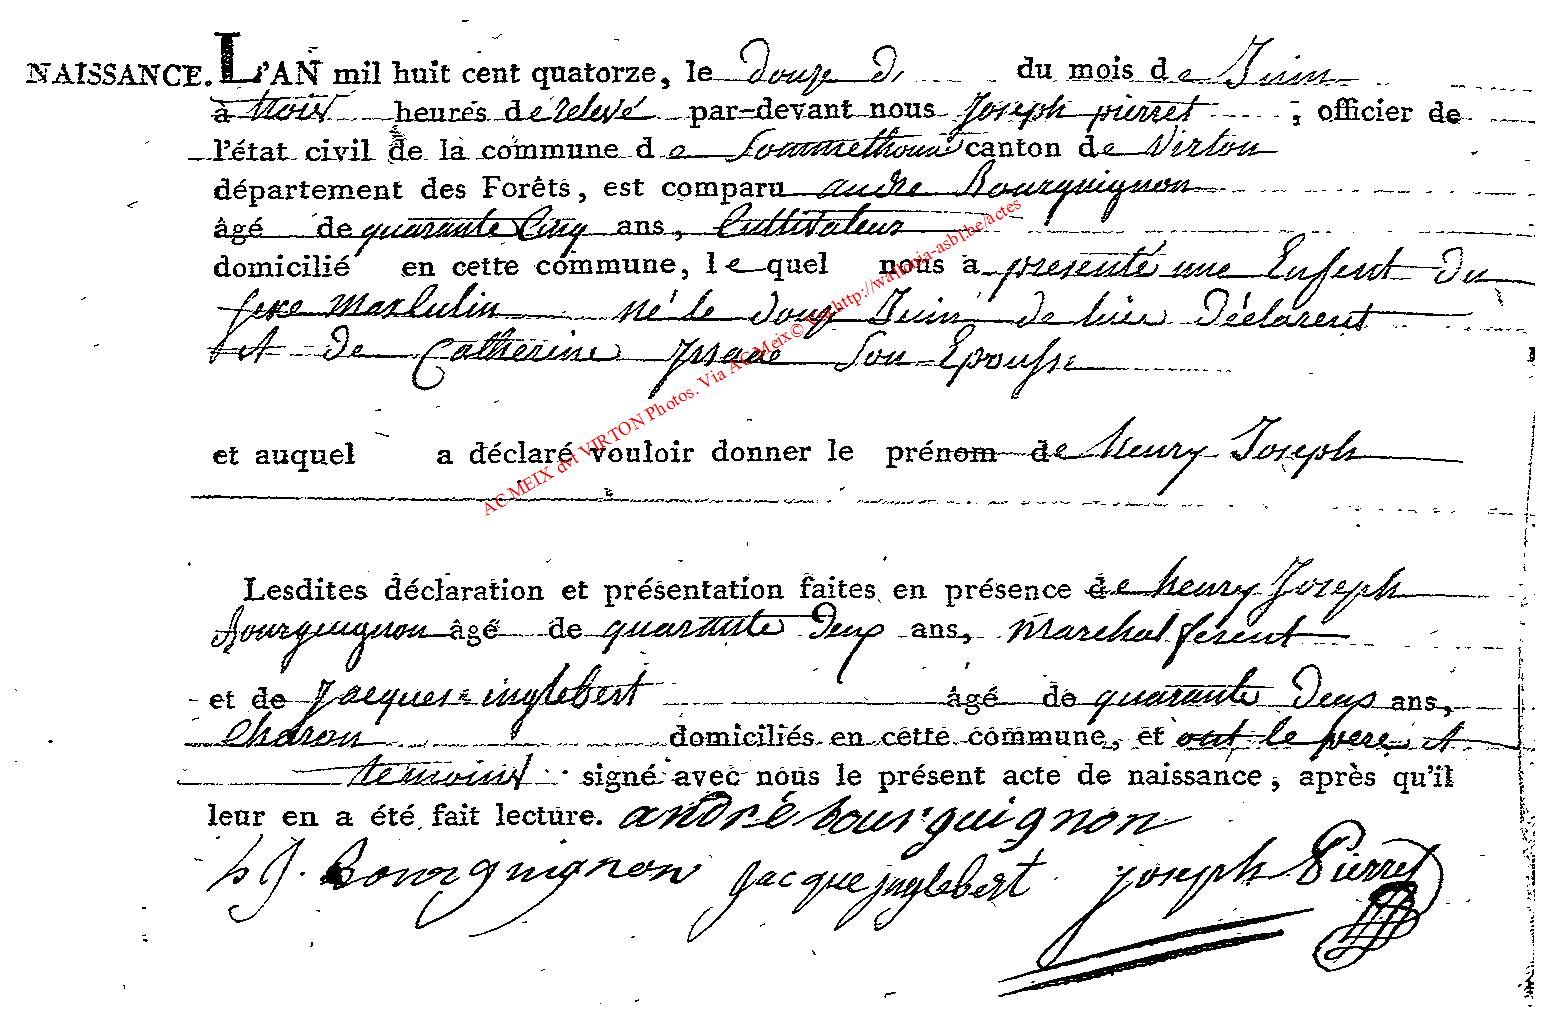 NAISSANCE. L'AN mil huit cent quatorze, le douze du mois de Juin
à trois heures de relevé par-devant nous Joseph pierret, officier de
l'état civil de la commune de Sommethonne canton de Virton
département des Forêts, est comparu andre Bourguignon
âgé de quarante Cinq ans, Cultivateur
domicilié en cette commune, lequel nous a presenté une Enfent du
sexe masculin né le douze Juin de luie Déclarent
et de Catherine son Epousse
et auquel a déclaré vouloir donner le prénom de henry Joseph
Lesdites déclaration et présentation faites en présence de henry Joseph
Bourguignon âgé de quarante Deux ans, Marchal ferent
et de Jacques inglebert âgé de quarante Deux ans,
Charon domiciliés en cette commune, et ont le pere et
temoins signé avec nous le présent acte de naissance, après qu'il
leur en a été fait lecture. andré bourguignon
h J. Bourguignon Jacque jnglebert joseph Pierret
AC MEIX dvt VIRTON Photos. Via AC Meix© http://wallonia-asbl.be/actes